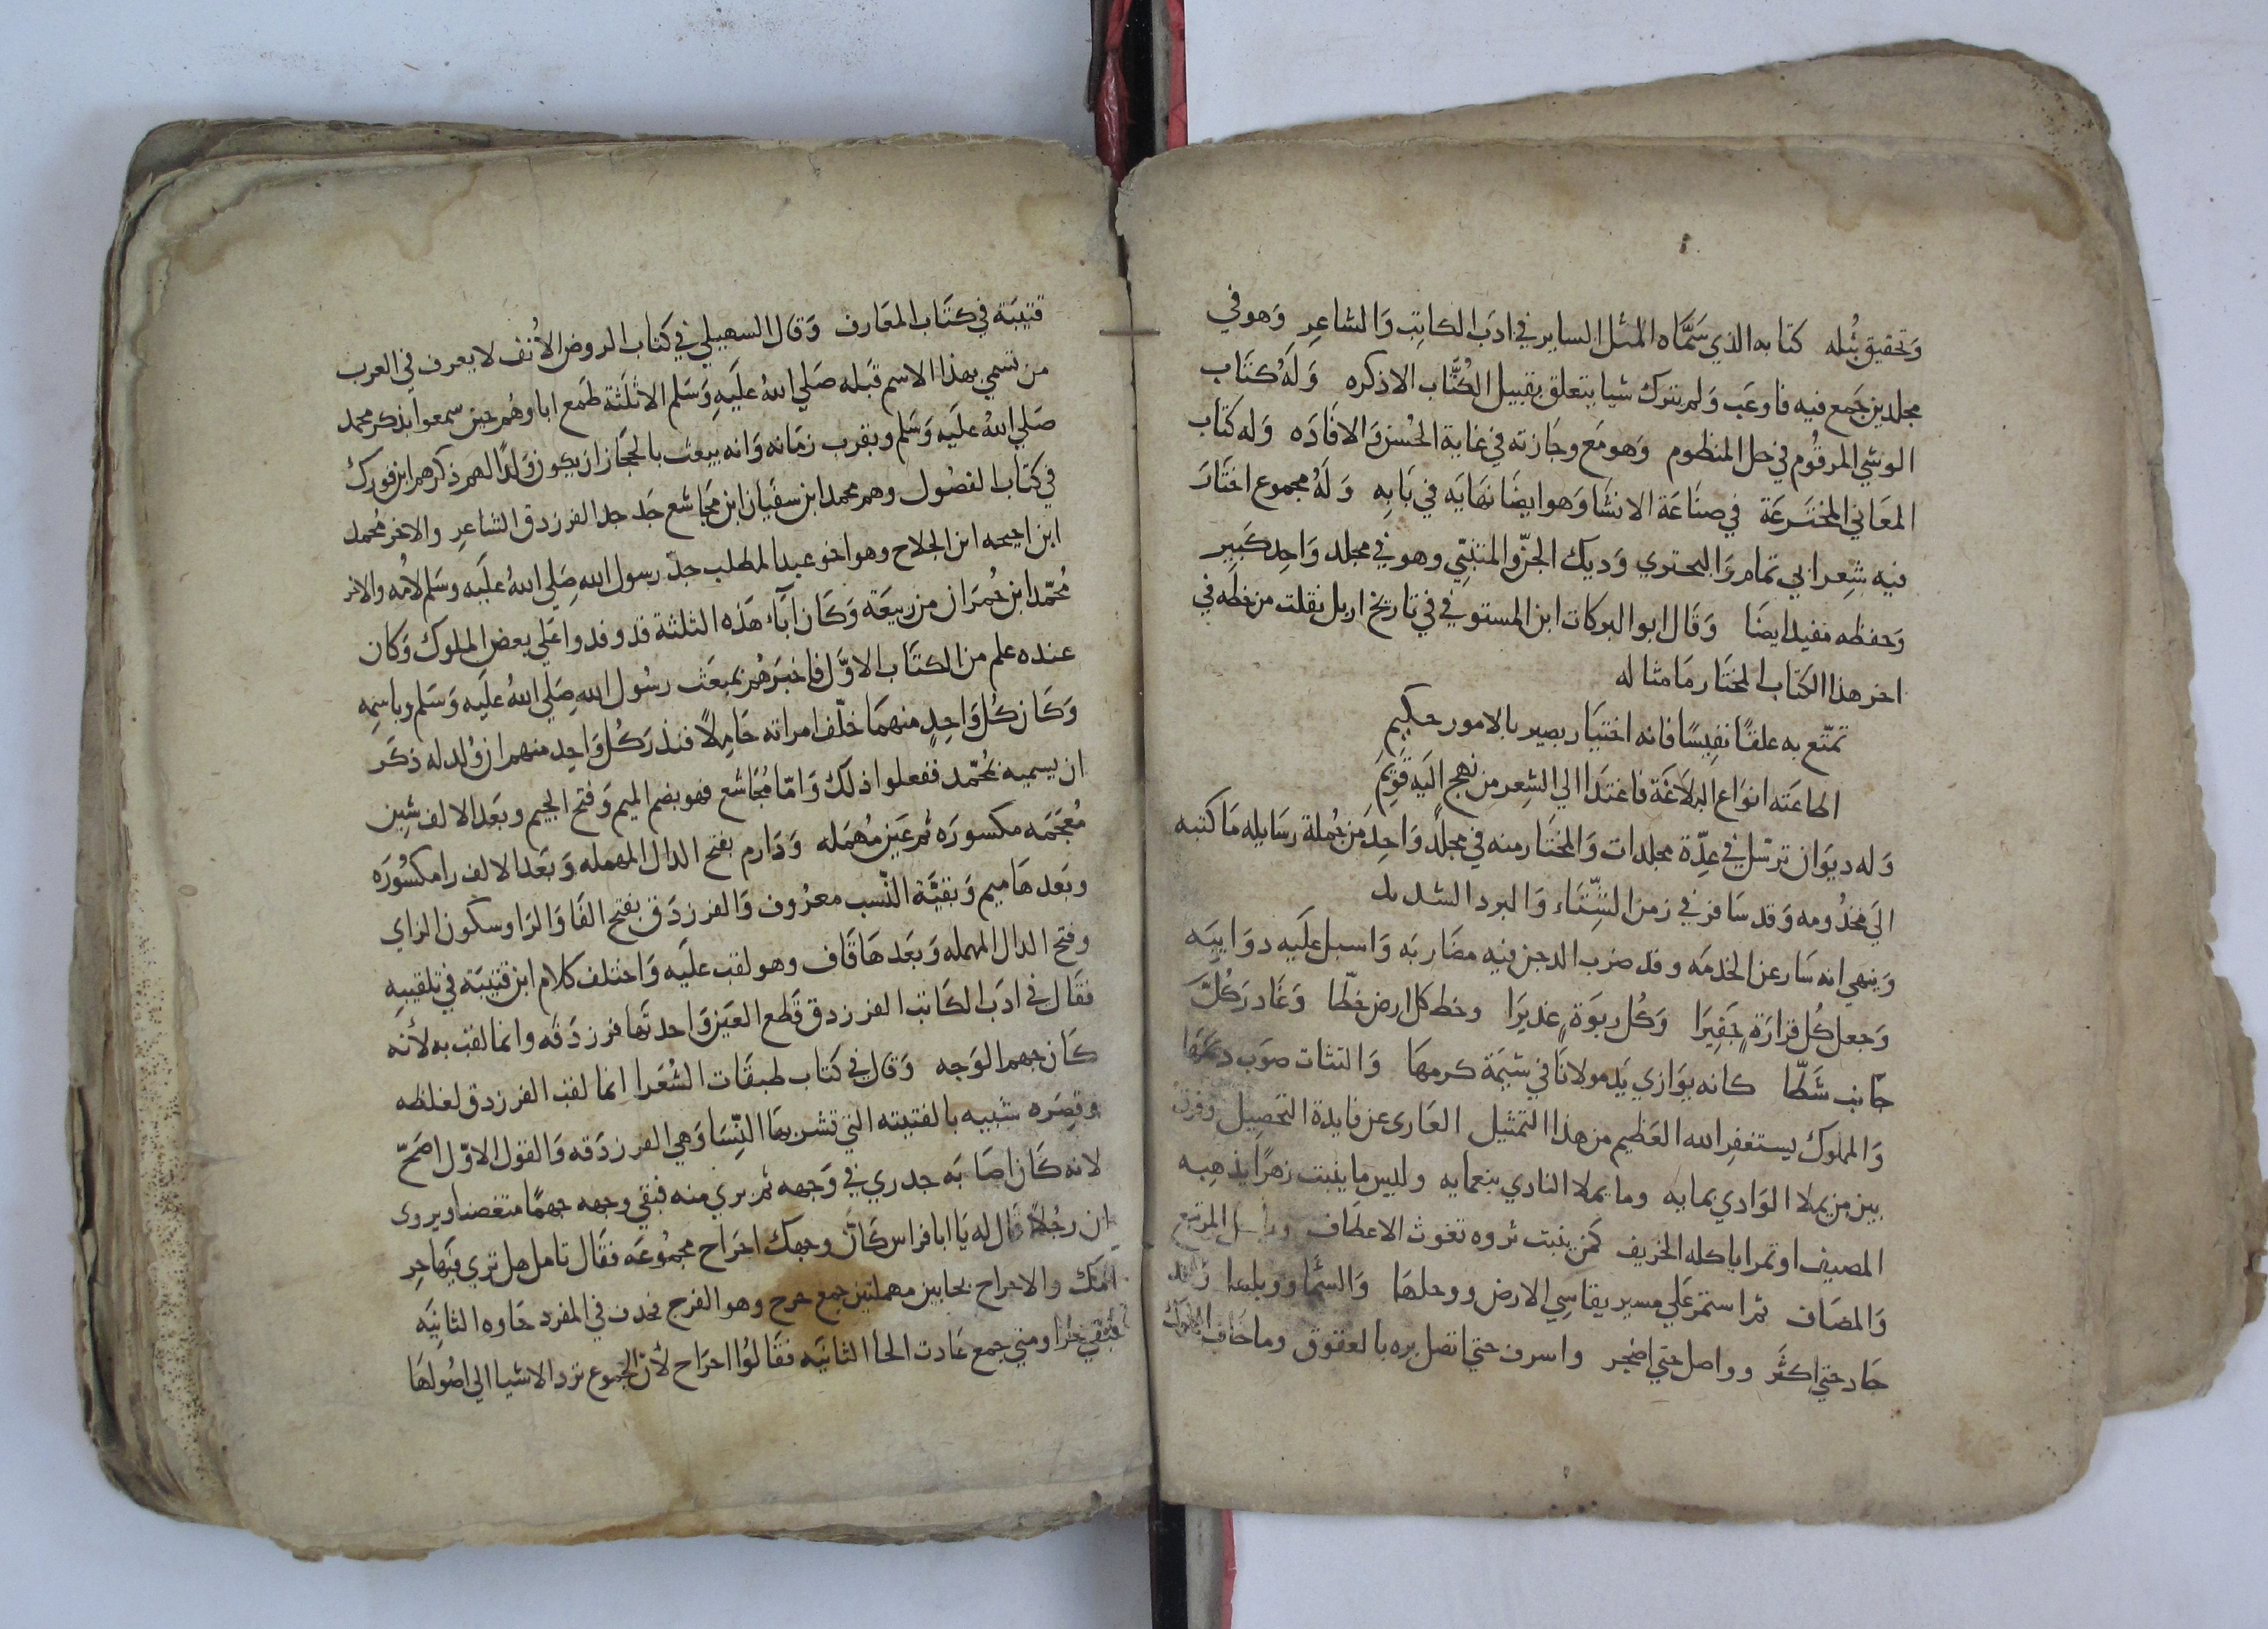 وَتحقيق نُبله كتابه الذي سَمَّاه المثل الساير في ادَب الكاتِب وَالشاعِرِ وَهو في
مجلدين جَمع فيه فاوعَب وَلم يترك شيا يتعلق بقبيل الكُتَّاب الا ذكره وَلَهُ كتَاب
الوشي المرقُوم في حل المنظوم وَهو مَع وجَازته في غاية الحُسن وَالافَادَه وَله كتَاب
المعَاني المختَرعَة في صنَاعَة الانشَا وَهو ايضَا نهَايَه في بَابِهِ وَلَهُ مجموع اختَارَ
فيه شعِر ابي تمام وَالبحتري وَديك الجنّ والمتنبّي وهو في مجلد وَاحِد كَبِير
وَحفظه مفيد ايضَا وَقَال ابو البركات ابن المستوفي في تاريخ اربل نقلت من خطه في
اخر هذا الكتَاب المختَار مَا مثاله
تمتّع به علقًا نفِيسًا فانه اختيَار بصير بالامور حكيم
اطاعَته انوَاع البَلاغَة فاهتَدا الي الشِعر من نهج اليَه قَويم
وَله ديوَان ترسّل في عِدّة مجلدات وَالمختَار منه في مجلد وَاحِد من جُملة رسَايله مَا كتبه
الَي مخدُومه وَقد سَافر في زمن الشِّتَاء وَالبرد الشديد
وَينهي انه سَار عن الخدمَه وقد ضرب الدجن فيه مضَاربَه وَاسبل علَيه دوَايبَه
وَجعل كُل قرارَةٍ حَفِيرَا وَكُل ربوَة غديرَا وخط كل ارض خطّا وَغَادر كُل
جَانب شَطّا كانه يوَازي يَد مولانَا في شيَمة كرمهَا وَالتثات صوَب ديمهَا
وَالمملوك يستغفِر الله العَظيم من هذا التمثيل العَارى عن فايدة التحَصِيل وفرق
بين من يملا الوَادي بمايه وما يملا النادي بنعمايه وليس ما ينبت زهرًا يذهِبه
المصيف او تمرا ياكله الخريف كمن ينبت ثروه تغوث الاعطَاف المرتبع
وَالمصَاف ثم استمر عَلي مسير يقاسِي الارض ووحلهَا وَالسّمَا ووبلها
جَاد حتي اكثَر وواصل حتي اضجر واسرف حتي اتصل بره بالعقوق وما خَاف
قتيبَة في كتَاب المعَارف وَقَال السهيلي في كتاب الروض الأنُف لا يعرف في العرب
من تسمي بهذا الاسم قبَله صَلي اللهُ علَيَهِ وَسَلم الا ثلَثَة طَمع اباوهُم حين سمعوا بذكر محمد
صَلي اللهُ علَيَه وَسَلم وبقرب زمَانه وَانه يبعث بالحجَاز ان يكون وَلدًا لهم ذكرهم ابن فورك
في كتاب الفصُول وهم محمد ابن سفيَان ابن مجَاشع جَد جد الفرزدق الشاعرِ والاخر مُحمد
ابن احيحه ابن الجلاح وهو اخو عبد المطلب جدّ رسول اللهِ صَلِي اللهُ علَيَه وَسَلم لامُه والاخر
مُحمّد ابن حُمرَان من ربيعَة وَكَان ابَآء هَذه الثلثة قد وفدوا عَلي بعض الملوك وَكان
عنده علم من الكتَاب الاوَّل فاخبَرَهُم بمبعَث رسُول اللهِ صَلِي اللهُ علَيه وَسَلم وباسِمِه
وَكَان كُل وَاحِدٍ منهمَا خلّف امراته حَامِلاً فنذر كُل وَاحِد منهم ان وُلد له ذكَر
ان يسميه مُحمّد ففعلوا ذلك وَامّا مُجَاشع فهو بضم الميم وَفتح الجيم وبعَد الالف شِين
مُعجَمَه مكسورَه ثم عَين مُهمَله وَدَارم بفتح الدال المهمله وَبعَد الالف را مكسُورَه
وبعَدهَا ميم وَبقيَّة النّسب معرُوف وَالفرزدَق بفتح الفَا وَالرَا وسكون الزاي
وفتح الدال المهمله وَبعَدهَا قَاف وهو لقب علَيه وَاختلف كلام ابن قتيبَة في تلقيبِهِ
فقَال في ادَب الكَاتب الفرزدق قَطع العَجين وَاحدتهَا فرزدَقه وانما لقب به لأنه
كَان جهم الوَجه وَقال في كتاب طبقَات الشُعَرا انما لقب الفرزدق لغلظه
وقصره شبيه بالفتيته التي تشربهَا النّسَا وَهي الفرزدَقه وَالقول الاوّل اصَحّ
لانه كَان اصَابَه جدري في وَجهه ثم بري منه فبقي وجهه جهمًا متغضنا ويروى
ان رجُلاً قال له يَا ابا فراس كَانّ وجهك احرَاح مجمُوعَه فقَال تامل هل تري فيهَا حِرِ
امك والاحراح بحايين مهملتين جمع حرح وهو الفرج فحدف في المفرد حَاوه الثانيَه
فبقي حرا ومتي جمع عَادت الحا الثانيَه فقَالوُا احرَاح لأنّ الجموع ترد الاشيا الي اصُولهَا